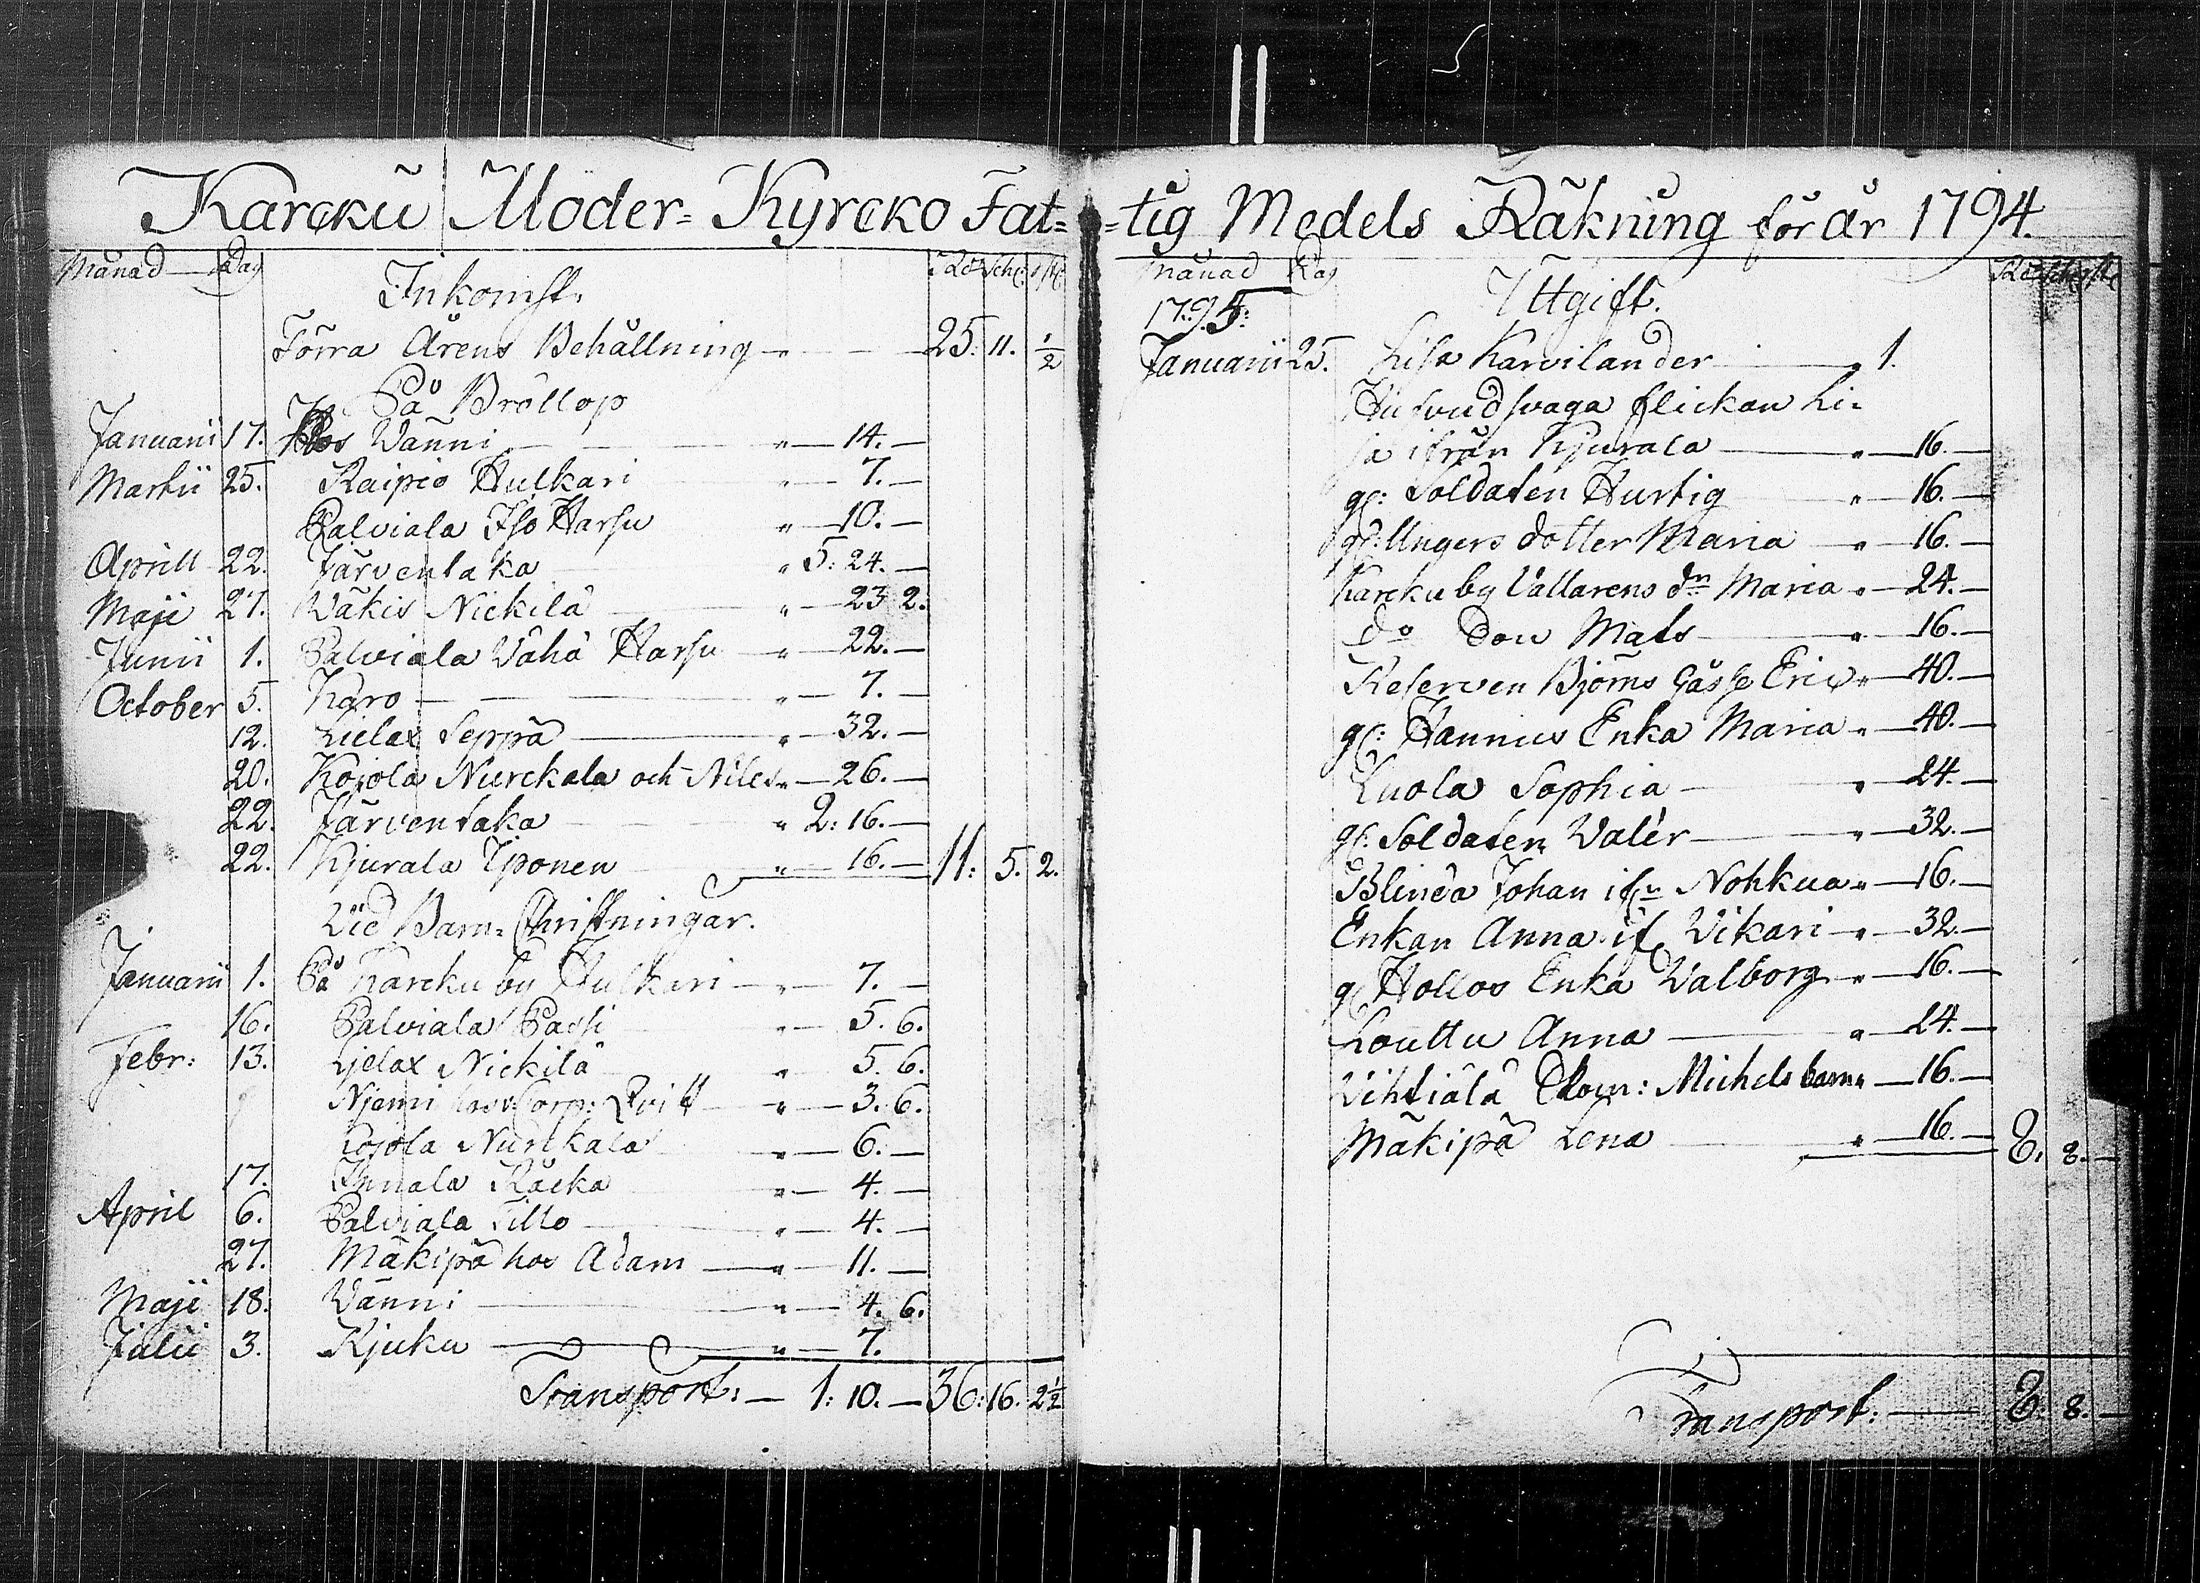 Karcku Moder= Kyrcko Fat=
Månad Dag Inkomst. Rd Sch: rst:
Förra Årens Behållning 25: 11. 1/2
På Bröllop
Januarii 17. hos Wänni " 14. —
Martii 25. Raipio Hulkari " 7. —
Palviala Iso Harsu " 10. —
Aprill 22. Järventaka " 5: 24. —
Maji 27. Wäkis Nickilä " 23 2.
Junii 1. Palviala Wähä Harsu " 22. —
October 5. Karo " 7. —
12. Lielax Seppä " 32. —
20. Kojola Nurckala och Niles " 26. —
22. Järventaka " 2: 16. —
22. Kjurala Yponen " 16. — 11: 5. 2.
Vid Barn= Christningar.
Januarii 1. På Karcku by Hulkari " 7. —
16. Palviala Passi " 5. 6.
Febr: 13. Ljelax Nickilä " 5. 6.
Njemi hos Corp: Qvist " 3. 6.
Kojola Nurckala " 6. —
17. Innala Räcka " 4. —
April 6. Palviala Tillo " 4. —
27. Mäkipä hos Adam " 11. —
Maji 18. Wänni " 4. 6.
Julii 3. Kjuku " 7.
Transport: — 1: 10. — 36: 16. 2 1/2
=tig Medels Räkning för år 1794.
Månad Dag Uttgift. Rd Sch rst
1795:
Januarii 25. Lisa Karvilander " 1.
Hufvudsvaga flickan Li=
sa ifrån Kjurala " 16. —
gl: Soldaten Hurtig " 16. —
gl: Ungers dotter Maria " 16. —
Karcku by Vallarens dn Maria " 24. —
do Son Mats " 16. —
Reserven Björns Gåsse Eric " 40. —
gl: Hannus Enka Maria " 40. —
Luola Sophia " 24. —
gl: Soldaten Walér " 32. —
Blinda Johan ifn Nohkua " 16. —
Enkan Anna if Vikari " 32. —
gl Hollos Enka Walborg " 16. —
Louttu Anna " 24. —
Vihtiälä Michels barn " 16. —
Mäkipä Lena " 16. — 8. 8. —
Transport: 8. 8. —